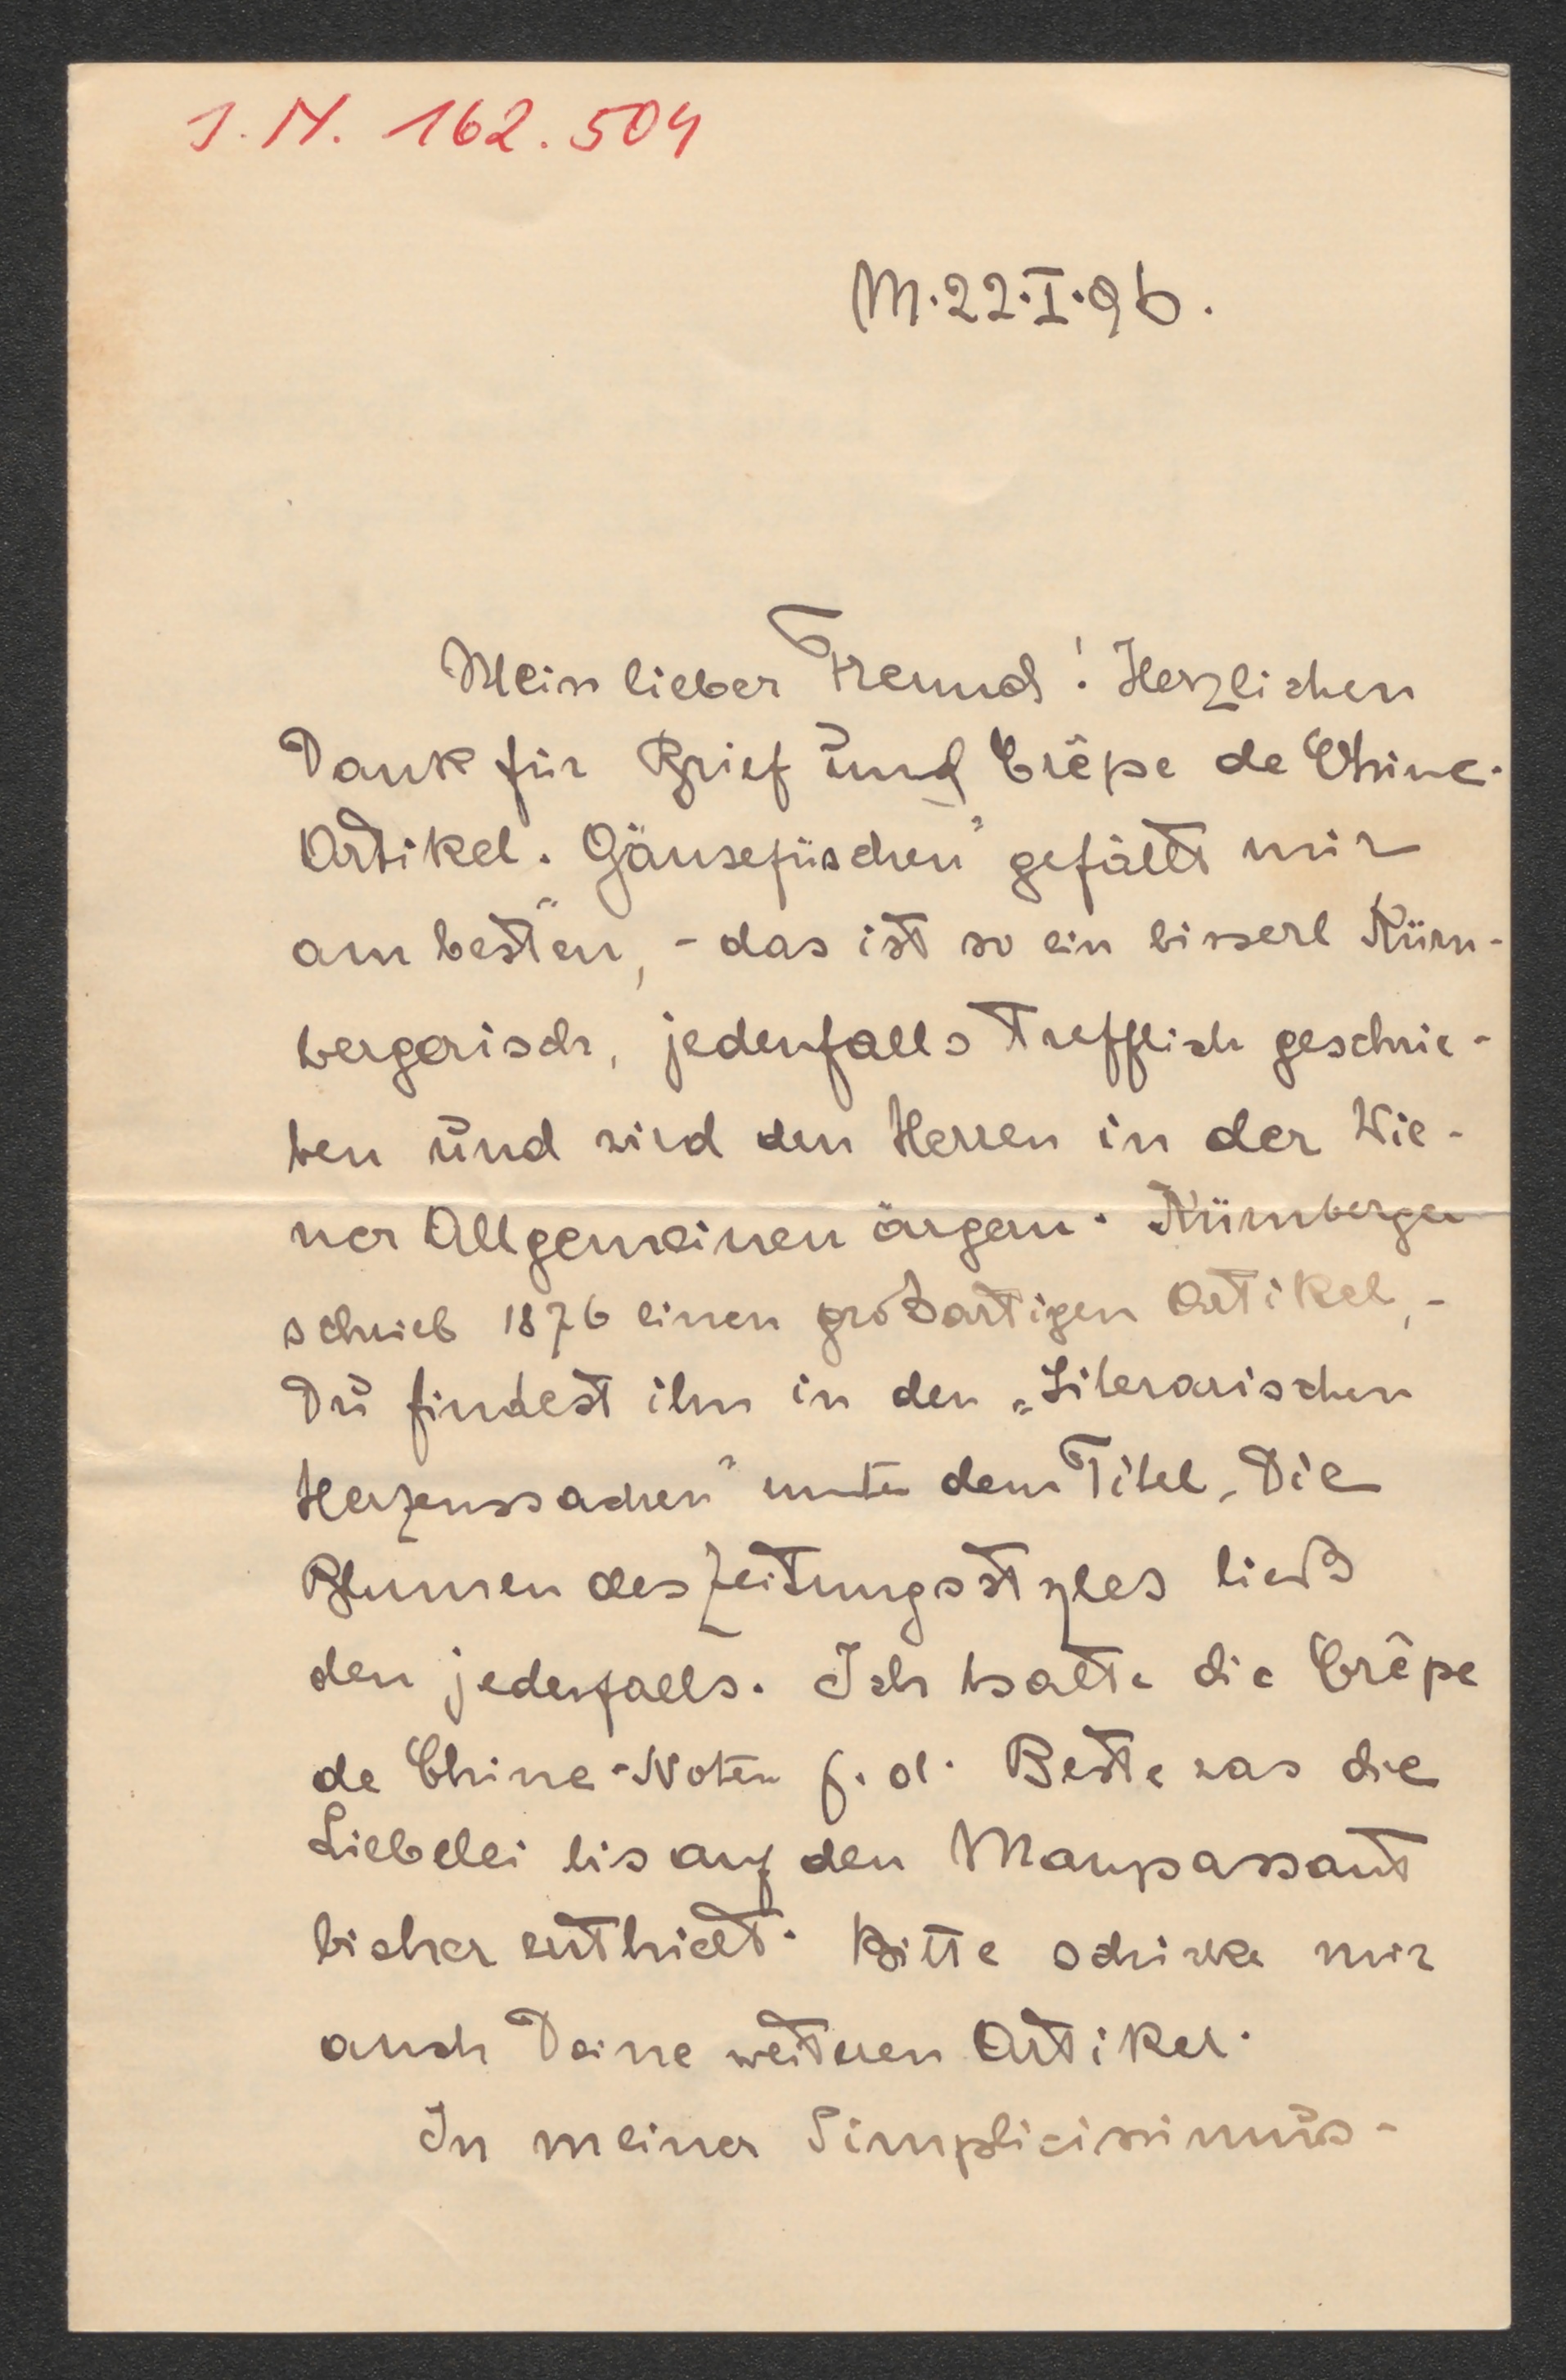 J. N. 162.504
M. 22. I. 96.
Mein lieber Freund! Herzlichen
Dank für Brief und Crêpe de Chine-
Artikel. „Gänsefüschen" gefällt mir
am besten, - das ist so ein bisserl Kürn-
bergerisch, jedenfalls trefflich geschrie-
ben und wird den Herren in der Wie-
ner Allgemeinen ärgern. Kürnberger
schrieb 1876 einen großartigen Artikel, -
Du findest ihn in den „Literarischen
Herzenssachen" unter dem Titel, Die
Blumen des Zeitungsstyles ließ
den jedenfalls. Ich halte die Crêpe
de Chine-Noten f. d. Beste was die
Liebelei bis auf den Maupassant
bisher enthielt. Bitte schicke mir
auch Deine weiteren Artikel.
In meiner Simplicissimus-